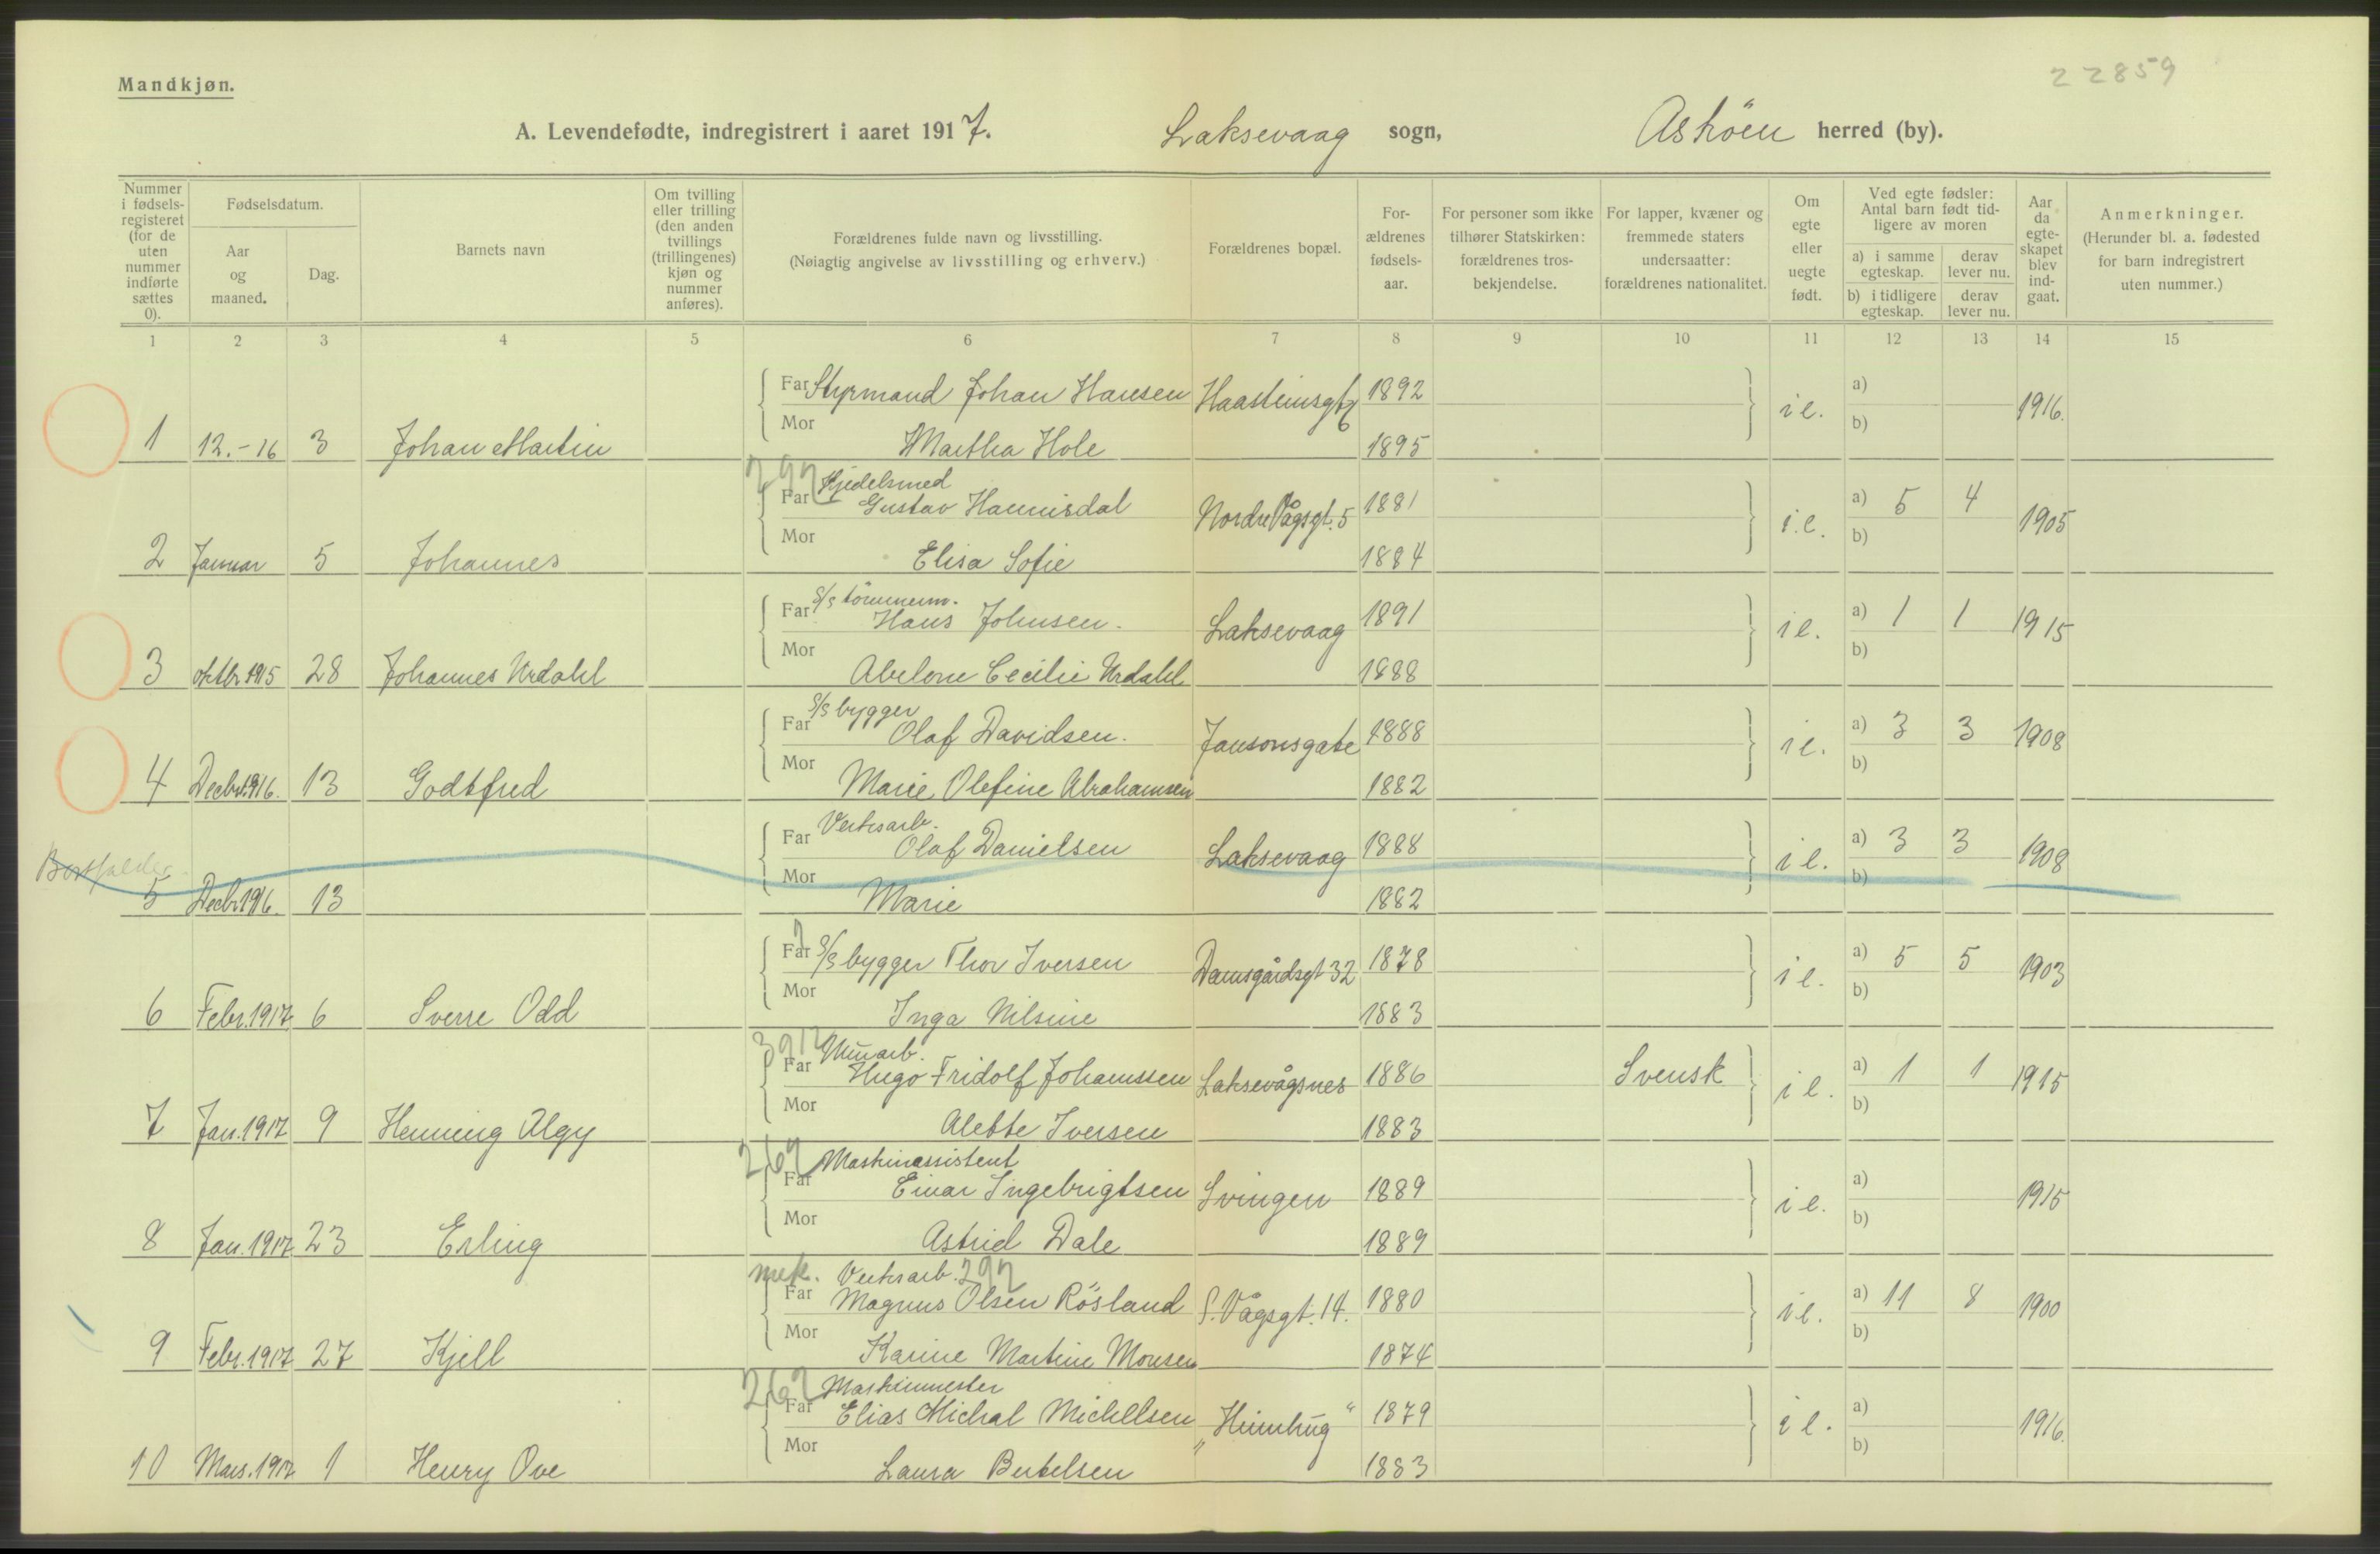 22859
Mandkjøn.
A. Levendefødte, indregistrert i aaret 1917. Laksevaag sogn, Askøen herred (by).
Nummer i fødsels-registeret (for de uten nummer indførte sættes 0).
Fødselsdatum.
Aar og maaned.
Dag.
Barnets navn
Om tvilling eller trilling (den anden tvillings (trillingenes) kjøn og nummer anføres).
Forældrenes fulde navn og livsstilling.
(Nøiagtig angivelse av livsstilling og erhverv.)
Forældrenes bopæl.
For-ældrenes fødsels-aar.
For personer som ikke tilhører Statskirken: forældrenes tros-bekjendelse.
For lapper, kvæner og fremmede staters undersaatter: forældrenes nationalitet.
Om egte eller uegte født.
Ved egte fødsler: Antal barn født tid-ligere av moren
a) i samme egteskap.
derav lever nu.
b) i tidligere egteskap.
derav lever nu.
Aar da egte-skapet blev ind-gaat.
Anmerkninger.
(Herunder bl. a. fødested for barn indregistrert uten nummer.)
1 2 3 4 5 6 7 8 9 10 11 12 13 14 15
Far Styrmand Johan Hansen Haasteinsgt 1892 ie. a) 1916.
Mor b)
1 12.-16 3 Johan Martin Martha Hole 1895
297 Kjedelsmed
Far Gustav Hannisdal Nordre Vågsgt. 5 1881 i.e. a) 5 4 1905
Mor b)
2 Januar 5 Johannes Elisa Sofie 1884
S/s tömmerm.
Far Hans Johnsen. Laksevaag 1891 ie. a) 1 1 1915
Mor b)
3 oktbr 1915 28 Johannes Urdahl Abelone Cecilie Urdahl 1888
S/s bygger
Far Olaf Davidsen. Jansonsgate 1888 ie. a) 3 3 1908
Mor b)
4 Decbr. 1916. 13 Godtfred Marie Olefine Abrahamsen 1882
Verksarb.
Far Olaf Danielsen Laksevaag 1888 ie. a) 3 3 1908
Bortfalder Mor b)
5 Decbr 1916. 13 Marie 1882
Far S/s bygger Thor Iversen Damsgårdsgt 32 1878 ie. a) 5 5 1903
Mor b)
6 Febr. 1917 6 Sverre Odd Inga Nilsine 1883
Minarb.
Far Hugo Fridolf Johanssen Laksevågsnes 1886 Svensk ie. a) 1 1 1915
Mor b)
7 Jan. 1917 9 Henning Algy Alette Iversen 1883
269 Maskinassistent
Far Einar Ingebrigtsen Svingen 1889 ie. a) 1915
Mor b)
8 Jan. 1917 23 Erling Astrid Dale 1889
mek. Verksarb. 297
Far Magnus Olsen Rösland S. Vågsgt. 14. 1880 ie. a) 11 8 1900
Mor b)
9 Febr. 1917 27 Kjell Karine Martine Monsen 1874
269 Maskinmester
Far Elias Michal Michelsen „Heimhug“ 1879 ie. a) 1916.
Mor b)
10 Mars. 1917 1 Henry Ove Laura Bertelsen 1883